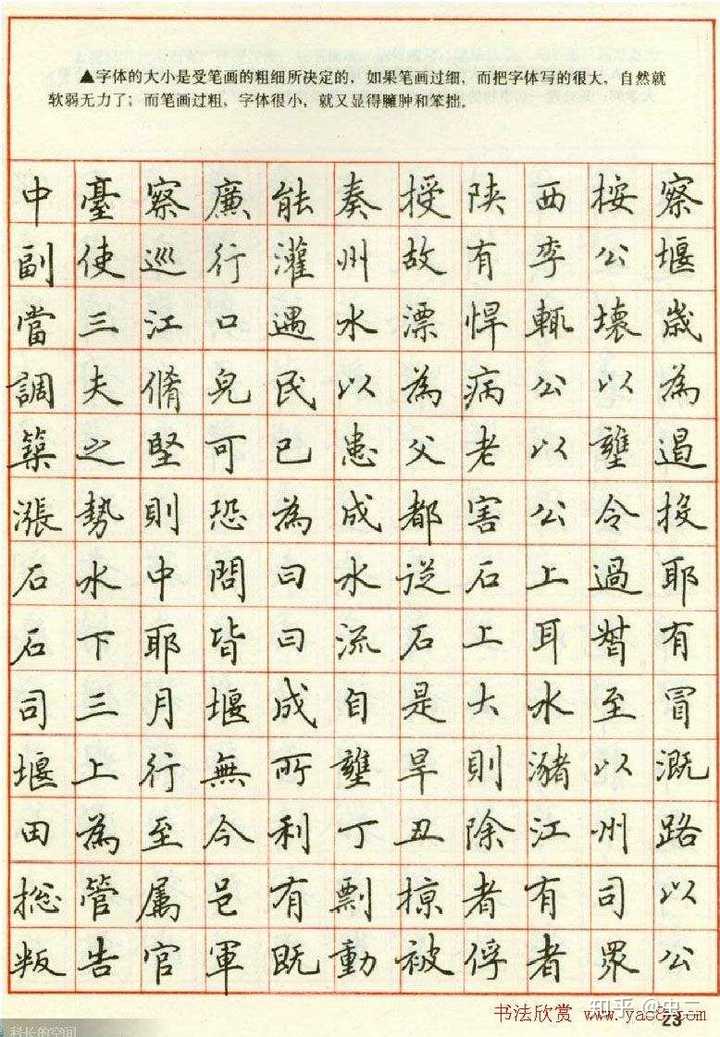 ▲字体的大小是受笔画的粗细所决定的，如果笔画过细，而把字体写的很大，自然就
软弱无力了；而笔画过粗，字体很小，就又显得臃肿和笨拙。
中臺察廉能奏授陕西按察
副使巡行灌州故有李公堰
當三江口遇水漂悍輒壞歳
調夫脩皃民以為病公以為
築之堅可已患父老以壅遏
漲勢則恐為成都害公令投
石水中問曰水従石上過耶
石下耶皆曰流石上耳暬有
司三月堰成自是大水至冒
堰上行無所壅旱則瀦以溉
田為至今利丁丑除江州路
捴管属邑有剽掠者有司以
叛告官軍既動被俘者眾公
知乎 @中二
书法欣赏 www.yac8.com
23
科长的空间